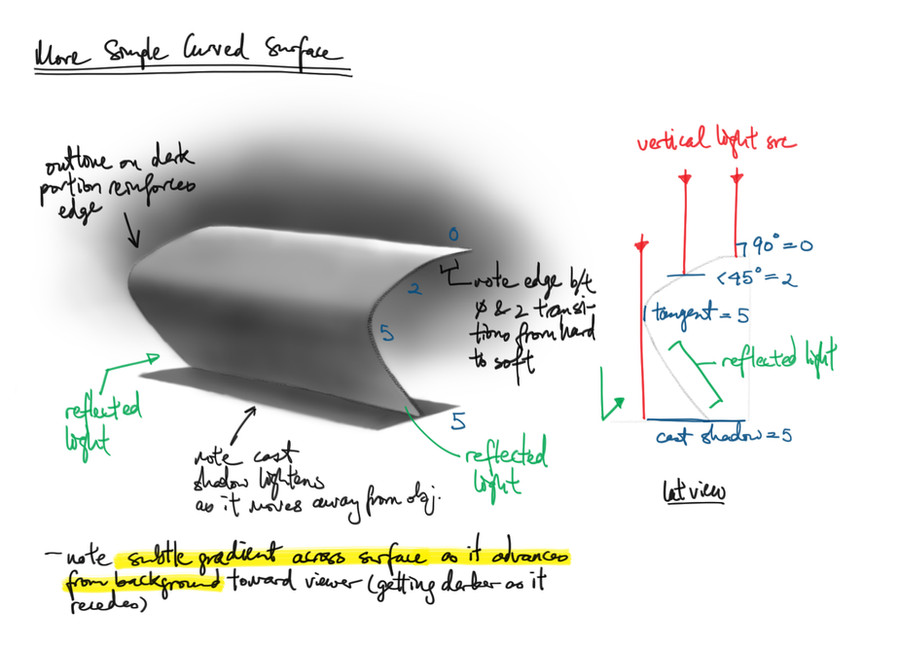 More Simple Curved Surface
outline on dark
portion reinforces
edge
vertical light src
0
2
5
5
note edge b/t
0 & 2 transi-
tions from hard
to soft
90° = 0
<45° = 2
tangent = 5
reflected light
cast shadow = 5
lat view
reflected
light
reflected
light
note cast
shadow lightens
as it moves away from obj.
- note subtle gradient across surface as it advances
from background toward viewer (getting darker as it
recedes)